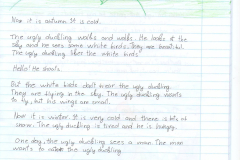 Now it is autumn. It is cold.
The ugly duckling walks and walks. He looks at the
sky and he sees some white birds. They are beautiful.
The ugly duckling likes the white birds.
Hello! He shouts.
But the white birds don't hear the ugly duckling.
They are flying in the sky. The ugly duckling wants
to fly, but his wings are small.
Now it is winter. It is very cold and there is lots of
snow. The ugly duckling is tired and he is hungry.
One day, the ugly duckling sees a man. The man
wants to the ugly duckling.